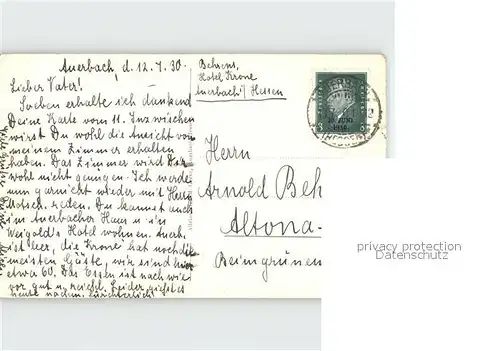 Auerbach, d. 12.7.30.
Lieber Vater!
Soeben erhalte ich dankend
Deine Karte vom 11. Inzwischen
wirst Du wohl die Ansicht von
meinem Zimmer erhalten
haben. Das Zimmer wird Dir
wohl nicht genügen. Ich werde
nun garnicht wieder mit Herrn
reden. Du kannst auch
im Auerbacher Haus u. in's
Weigold's Hotel wohnen. Auerb.
ist leer, die Krone hat noch die
meisten Gäste, wie sind hier
etwa 60. Das Essen ist nach wie
vor gut u. reichl. Leider gießt es
heute nachm.
Behrens,
Hotel Krone
Auerbach / Hessen
Herrn
Arnold Beh
Altona-
Beim grünen
privacy protection
Datenschutz